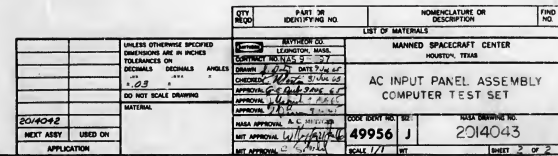 QTY REQD
PART OR IDENTIFYING NO.
NOMENCLATURE OR DESCRIPTION
FIND NO.
LIST OF MATERIALS
UNLESS OTHERWISE SPECIFIED
DIMENSIONS ARE IN INCHES
TOLERANCES ON
DECIMALS DECIMALS ANGLES
.03
DO NOT SCALE DRAWING
MATERIAL
2014042
NEXT ASSY USED ON
APPLICATION
RAYTHEON CO.
LEXINGTON, MASS.
CONTRACT NO. NAS 9-
DRAWN DATE
CHECKED
APPROVAL
APPROVAL
APPROVAL
NASA APPROVAL
MIT APPROVAL
MIT APPROVAL
MANNED SPACECRAFT CENTER
HOUSTON, TEXAS
AC INPUT PANEL ASSEMBLY
COMPUTER TEST SET
CODE IDENT NO. SIZE NASA DRAWING NO.
49956 J 2014043
SCALE 1/1 WT SHEET 2 OF 2